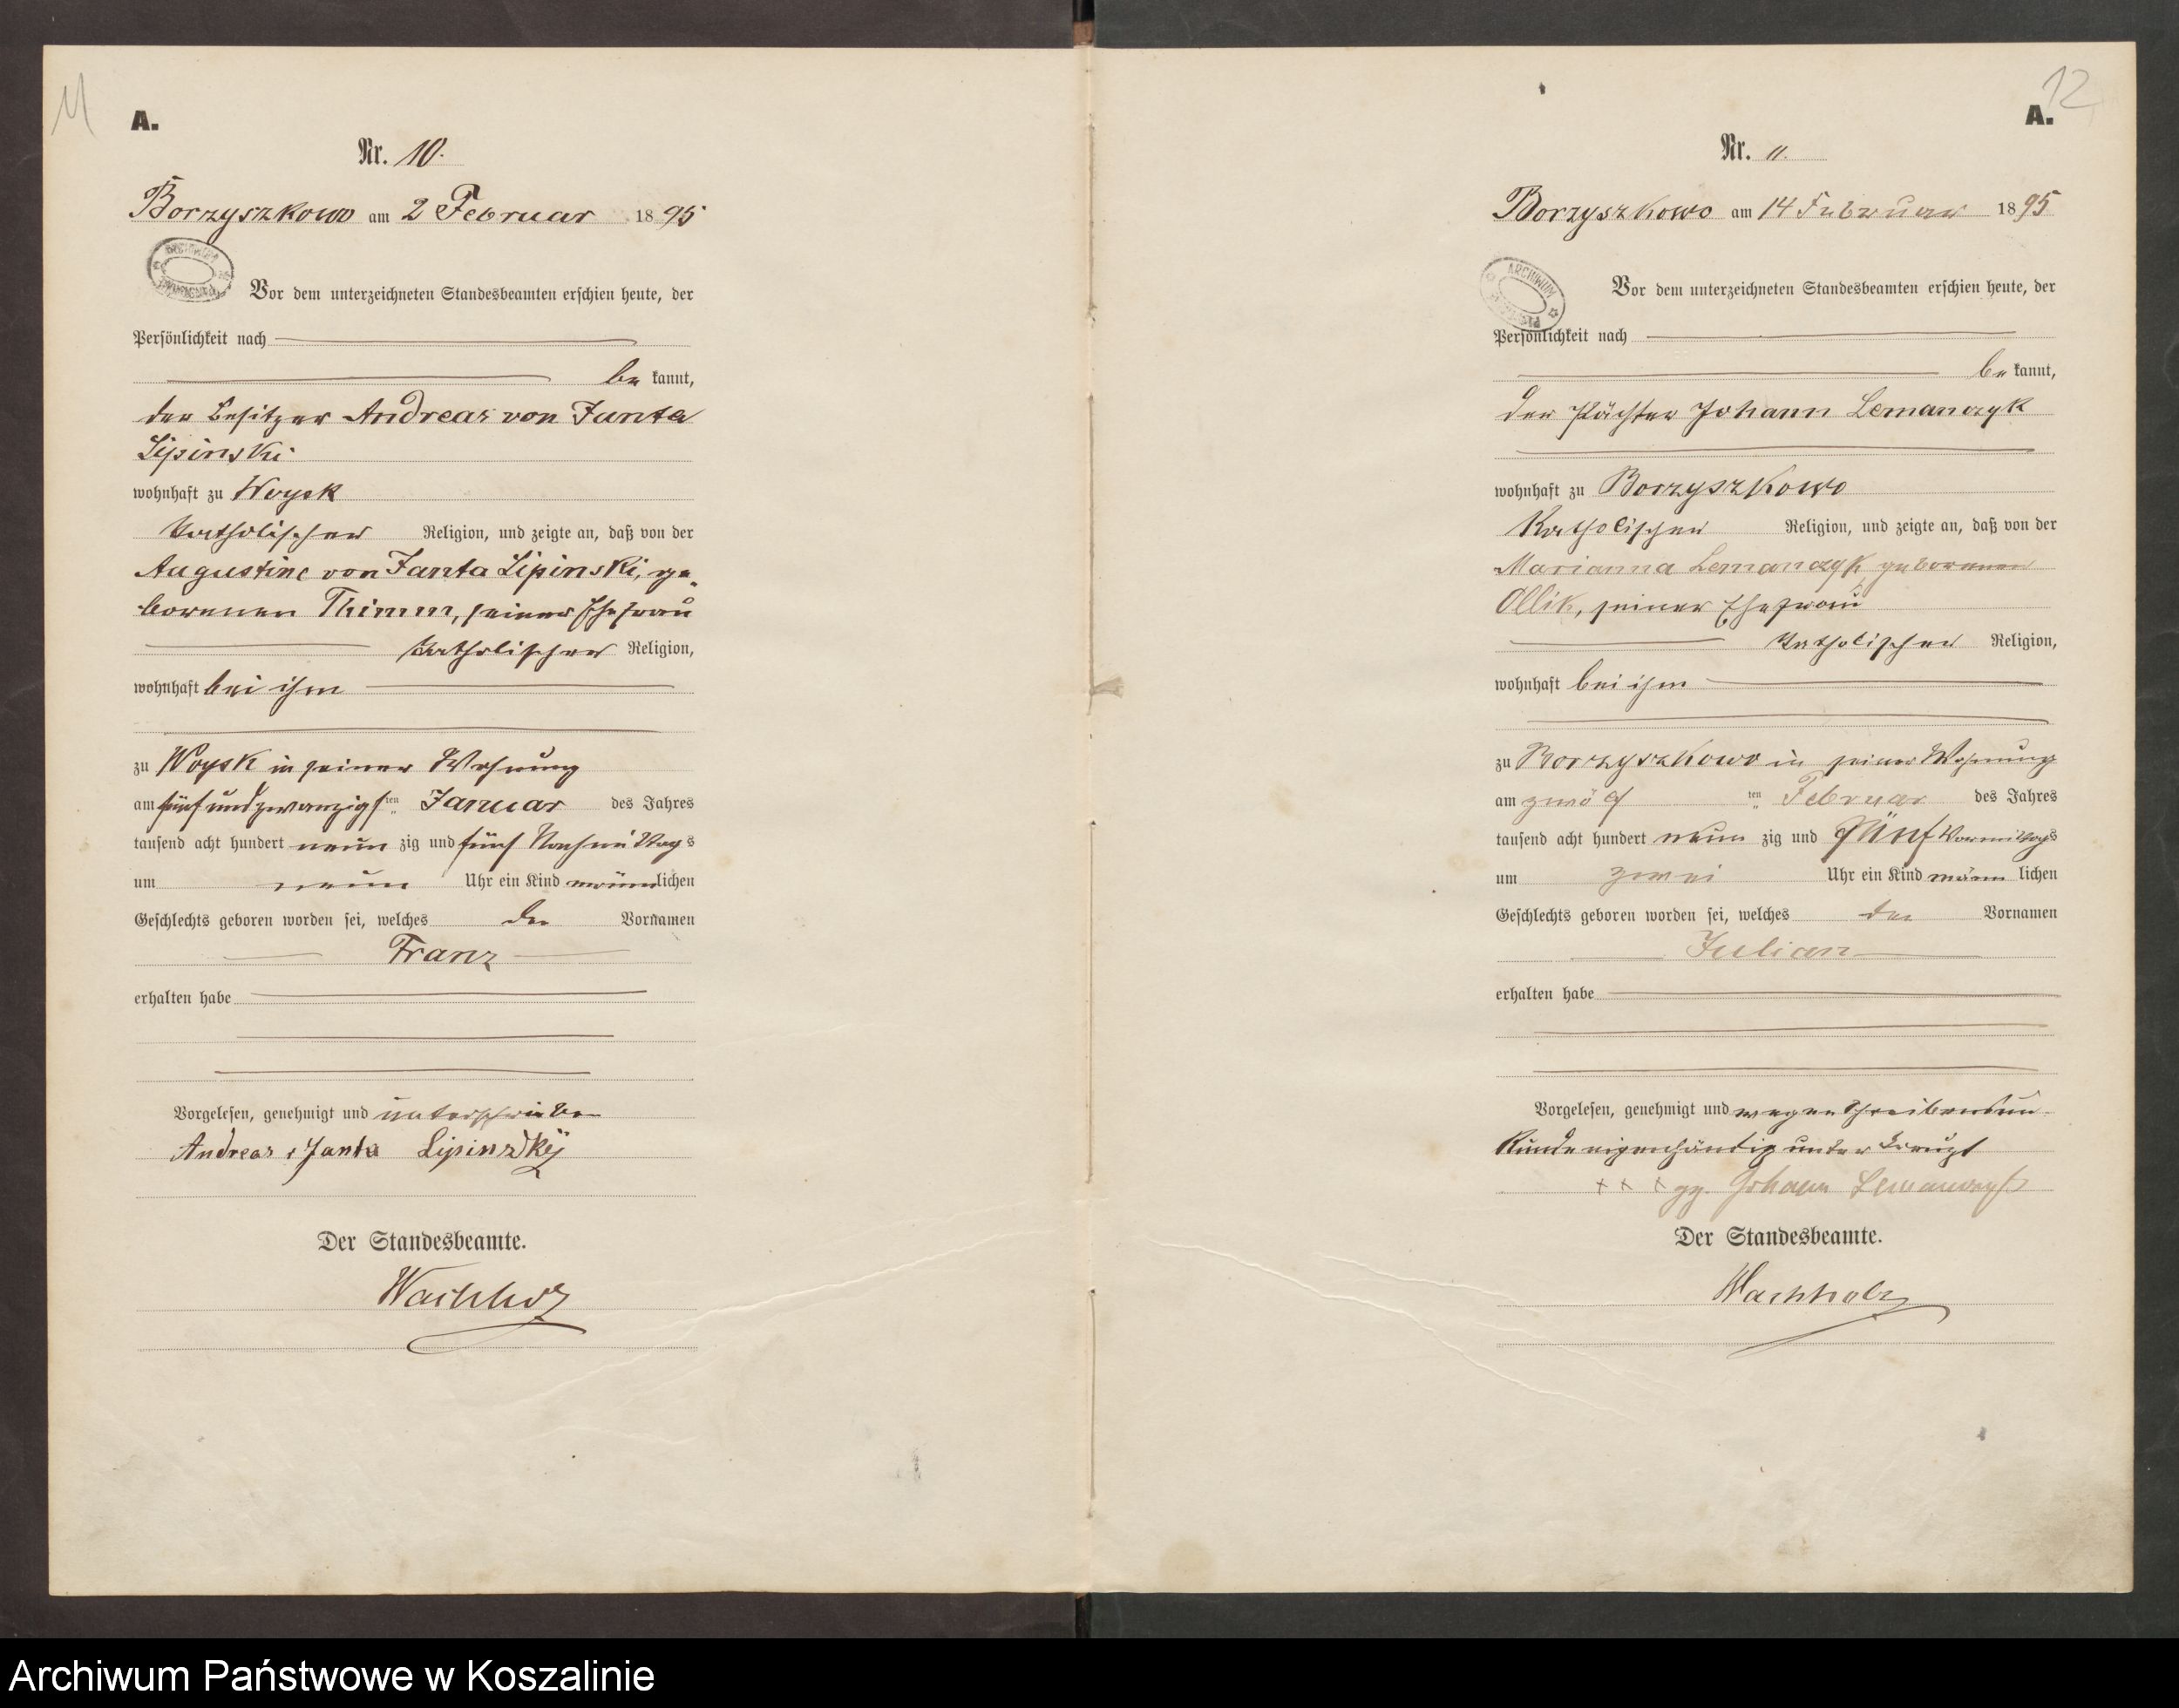 11
A.
Nr. 10.
Borzyszkowo am 2 Februar 1895
Vor dem unterzeichneten Standesbeamten erschien heute, der
Persönlichkeit nach
be kannt,
der Besitzer Andreas von Janta
Lipinski
wohnhaft zu Woysk
katholischer Religion, und zeigte an, daß von der
Augustine von Janta Lipinski, ge-
borenen Thimm, seiner Ehefrau
katholischer Religion,
wohnhaft bei ihm
zu Woysk in seiner Wohnung
am fünf und zwanzigsten Januar des Jahres
tausend acht hundert neun zig und fünf Nachmittags
um neun Uhr ein Kind männlichen
Geschlechts geboren worden sei, welches den Vornamen
Franz
erhalten habe
Vorgelesen, genehmigt und unterschrieben
Andreas v Janta Lipinsky
Der Standesbeamte.
Wachholz
12
A.
Nr. 11.
Borzyszkowo am 14 Februar 1895
ARCHIWUM
Vor dem unterzeichneten Standesbeamten erschien heute, der
Persönlichkeit nach
be kannt,
der Pächter Johann Lemanczyk
wohnhaft zu Borzyszkowo
katholischer Religion, und zeigte an, daß von der
Marianna Lemanczyk geborenen
Ollik, seiner Ehefrau
katholischer Religion,
wohnhaft bei ihm
zu Borzyszkowo in seiner Wohnung
am zwölf ten Februar des Jahres
tausend acht hundert neun zig und fünf Vormittags
um zwei Uhr ein Kind männ lichen
Geschlechts geboren worden sei, welches den Vornamen
Julian
erhalten habe
Vorgelesen, genehmigt und wegen Schreibensun-
kunde eigenhändig unterkreuzt
+ + + gz. Johann Lemanczyk
Der Standesbeamte.
Wachholz
Archiwum Państwowe w Koszalinie